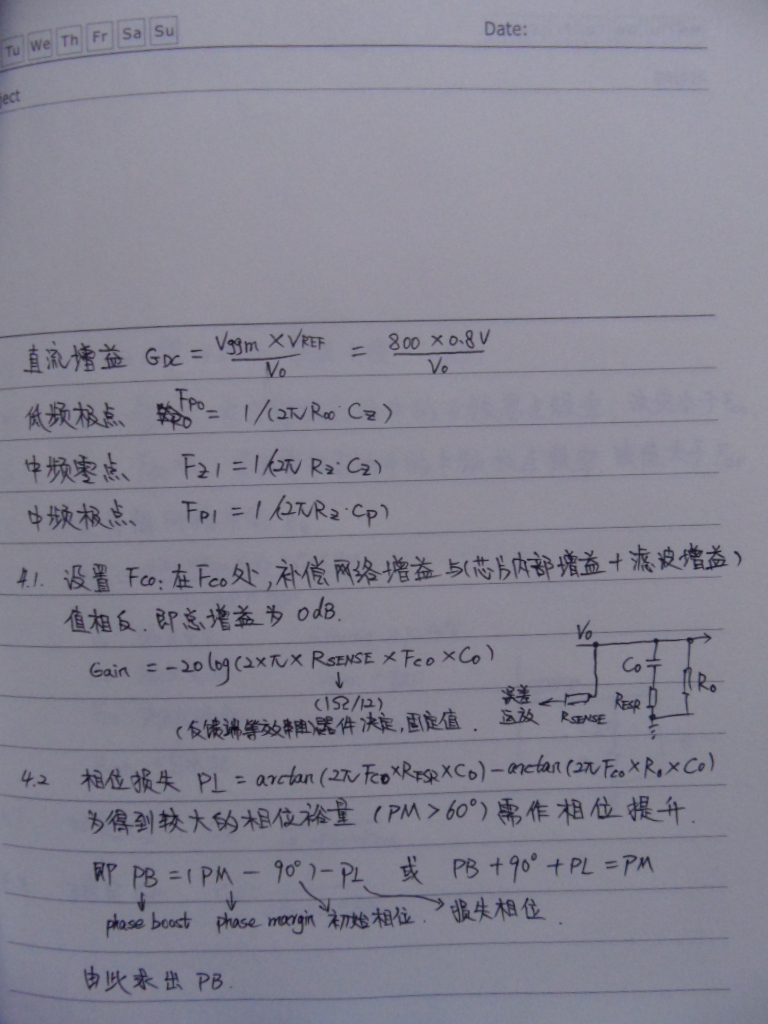 Tu We Th Fr Sa Su
Date:
ject
直流增益 GDC = Vggm × VREF / Vo = 800 × 0.8V / Vo
低频极点 FPO = 1/(2π Roo · Cz)
中频零点 Fz1 = 1/(2π Rz · Cz)
中频极点 FP1 = 1/(2π Rz · Cp)
4.1. 设置 Fco: 在Fco处, 补偿网络增益与(芯片内部增益 + 滤波增益)
值相反. 即总增益为 0dB.
Gain = -20log(2×π× RSENSE × Fco × Co)
(1Ω/12)
(反馈端等效电阻)器件决定, 固定值.
Vo
Co
RESR
Ro
误差
运放
RSENSE
4.2 相位损失 PL = arctan(2π Fco×RESR×Co) - arctan(2π Fco×Ro×Co)
为得到较大的相位裕量 (PM>60°) 需作相位提升.
即 PB = (PM - 90°) - PL 或 PB + 90° + PL = PM
phase boost phase margin 初始相位. 损失相位.
由此求出 PB.